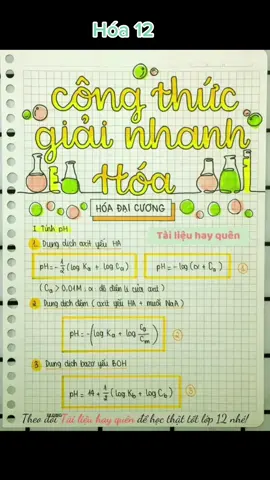 Hóa 12
công thức
giải nhanh
Hóa
HÓA ĐẠI CƯƠNG
Tài liệu hay quên
I. Tính pH
1. Dung dịch axit yếu HA
pH = - 1/2 (log Ka + log Ca) pH = - log (α + Ca) ①
(Ca > 0.01M ; α: độ điện li của axit)
2. Dung dịch đệm (axit yếu HA + muối NaA)
pH = - (log Ka + log Ca/Cm) ②
3. Dung dịch bazơ yếu BOH
pH = 14 + 1/2 (log Kb + log Cb) ③
Theo dõi Tài liệu hay quên để học thật tốt lớp 12 nhé!